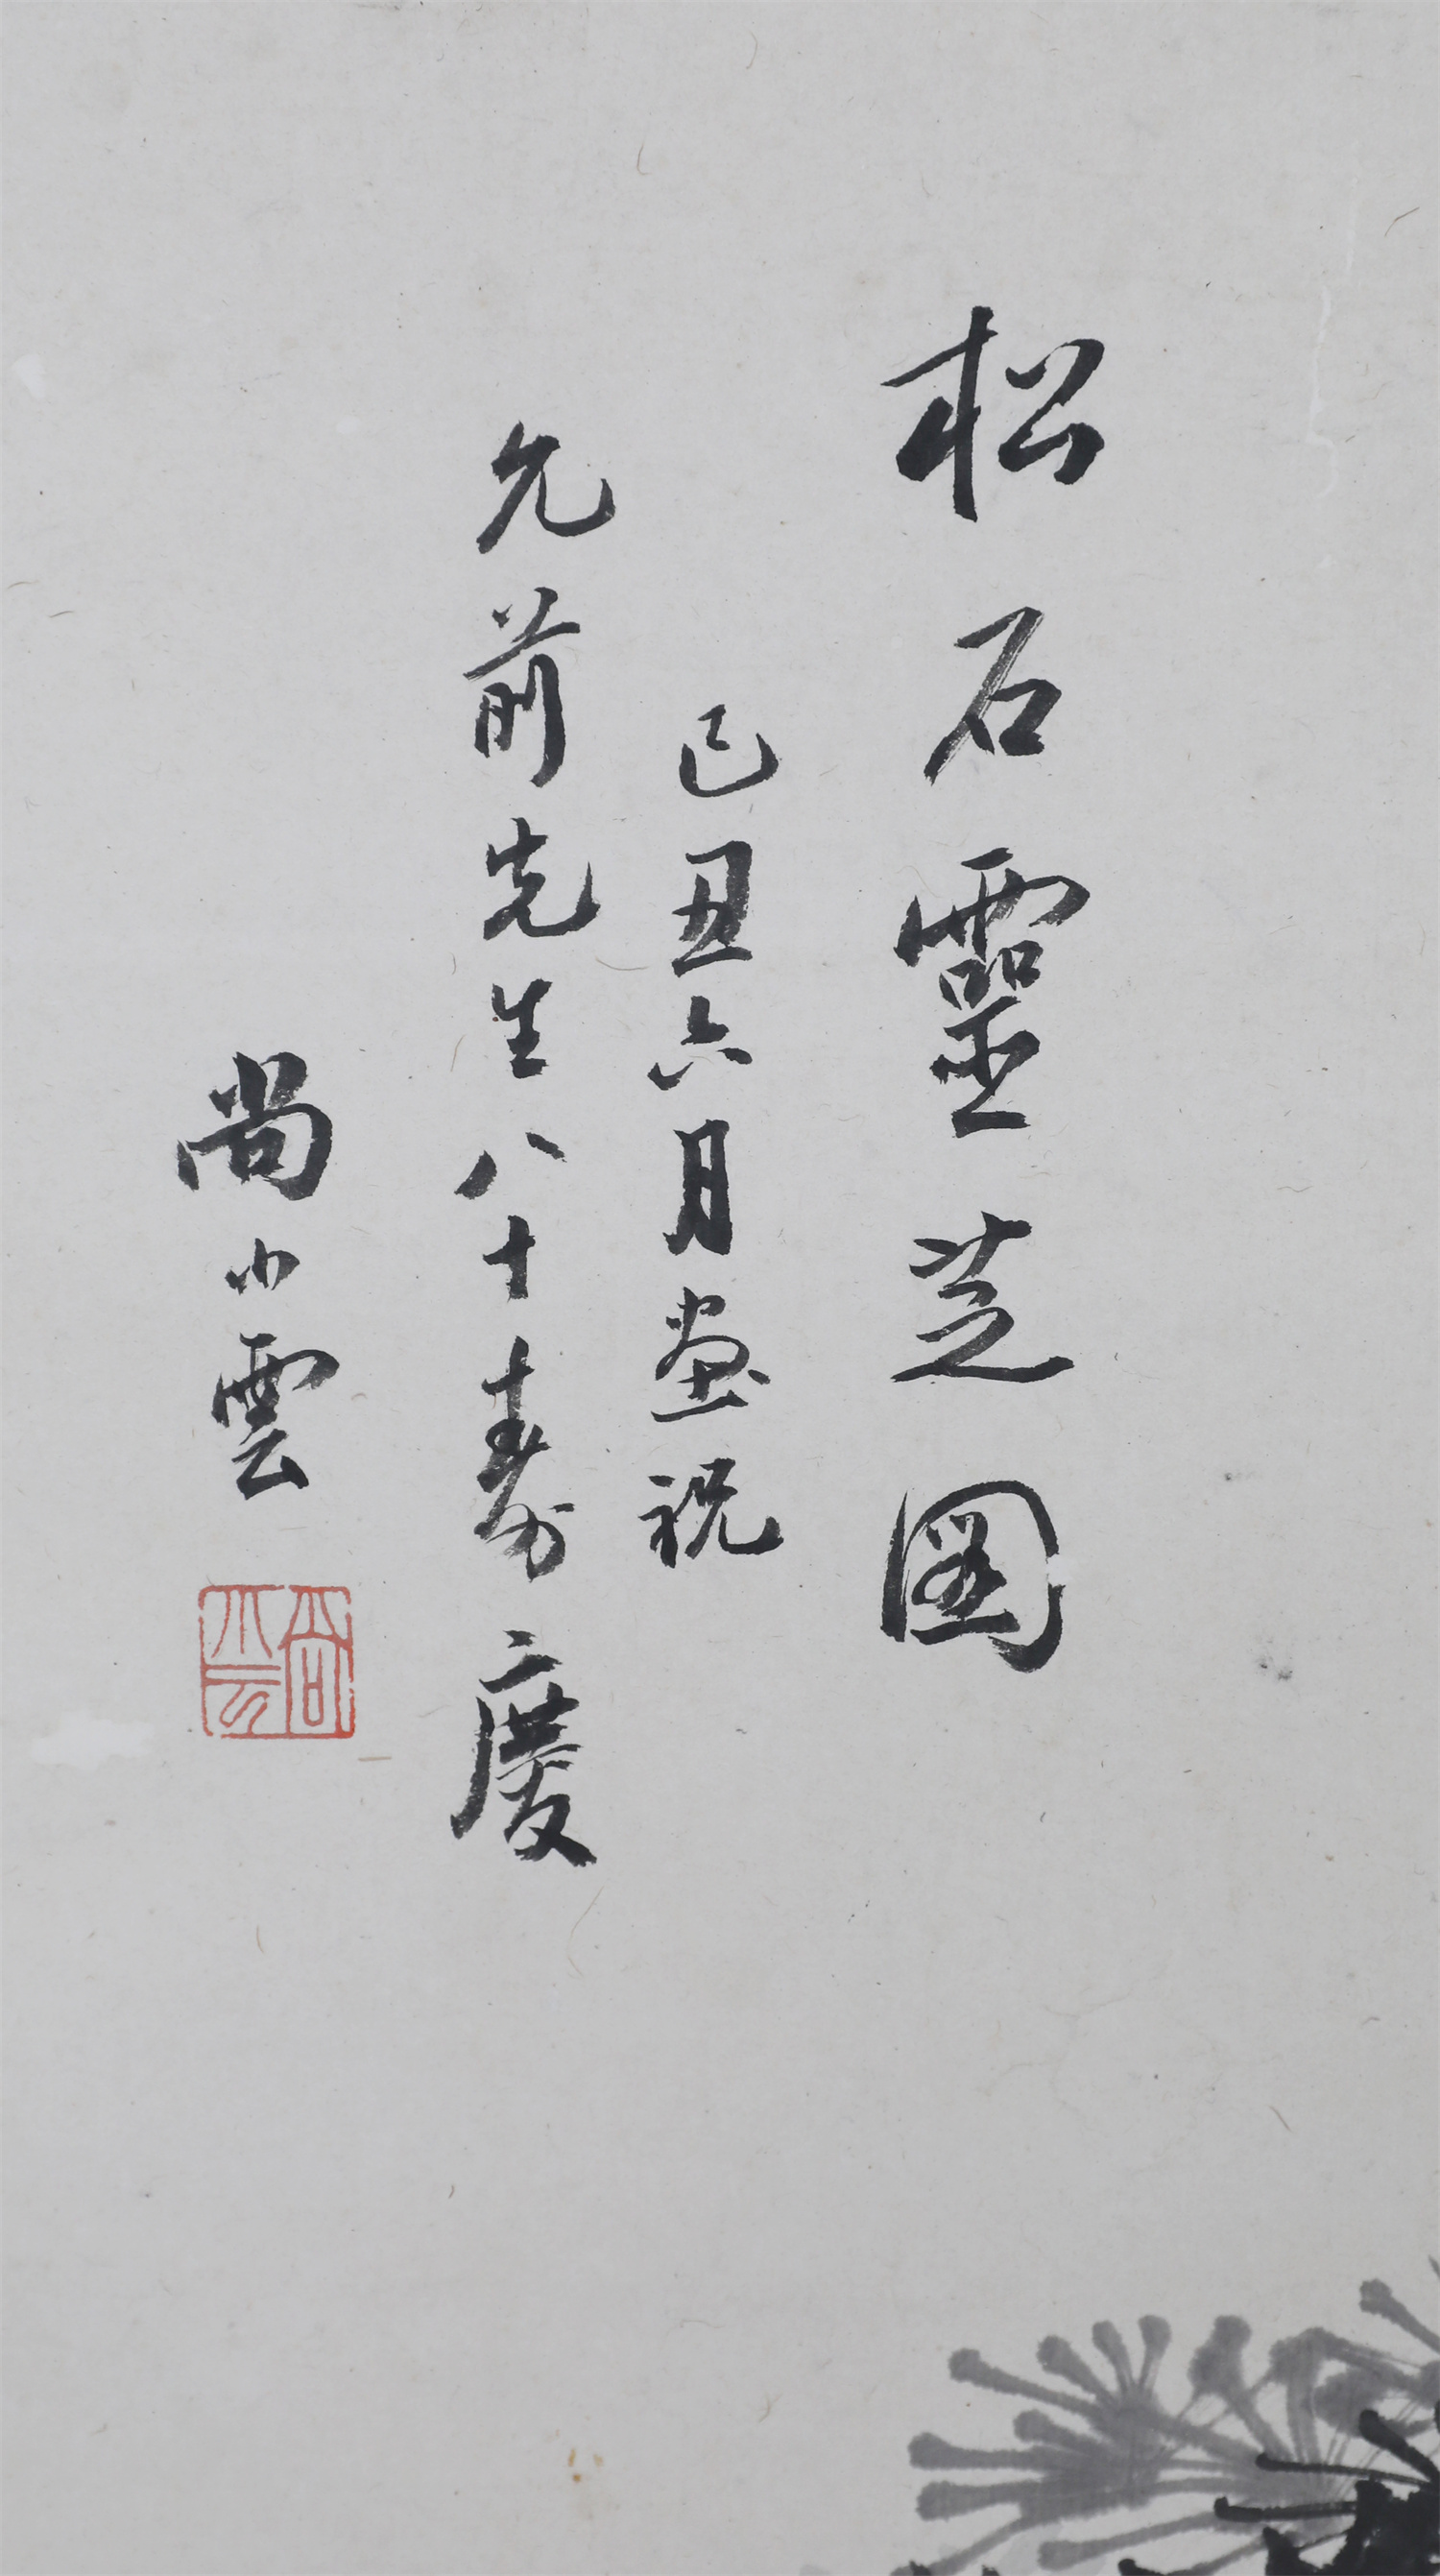 松石靈芝圖
己丑六月画祝
允前先生八十壽慶
尚小雲
尚小云